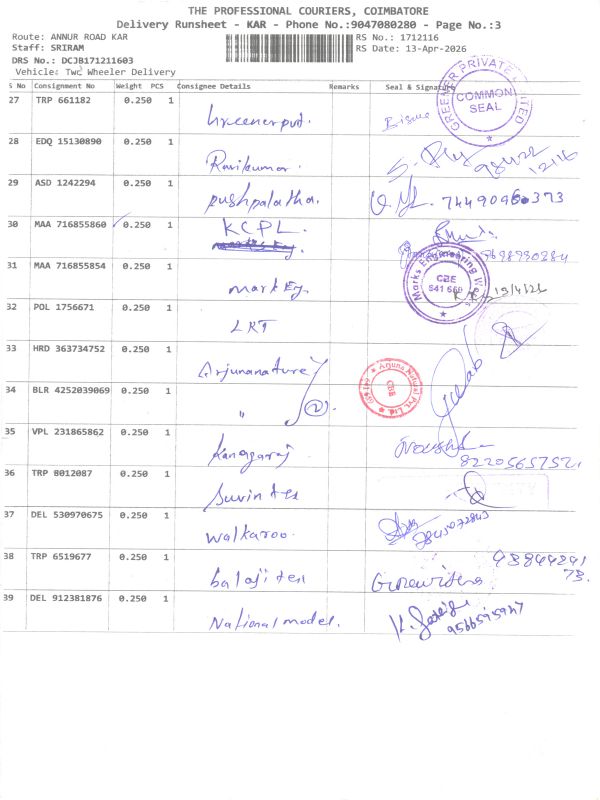 THE PROFESSIONAL COURIERS, COIMBATORE
Delivery Runsheet - KAR - Phone No.:9047080280 - Page No.:3
Route: ANNUR ROAD KAR RS No.: 1712116
Staff: SRIRAM RS Date: 13-Apr-2026
DRS No.: DCJB171211603
Vehicle: Two Wheeler Delivery
S No Consignment No Weight PCS Consignee Details Remarks Seal & Signature
27 TRP 661182 0.250 1
GREENER PRIVATE LIMITED COMMON SEAL
28 EDQ 15130890 0.250 1 Ravikumar.
29 ASD 1242294 0.250 1 pushpalatha.
30 MAA 716855860 0.250 1 KCPL.
31 MAA 716855854 0.250 1 mark Eg. Marks Engineering Works CBE 641 659
32 POL 1756671 0.250 1 LRT
33 HRD 363734752 0.250 1 Arjunanature
34 BLR 4252039069 0.250 1 " (2). Arjuna Natural Pvt. Ltd. CBE
35 VPL 231865862 0.250 1 Kanagaraj 8220565752
36 TRP 8012087 0.250 1
37 DEL 530970675 0.250 1 walkaroo.
38 TRP 6519677 0.250 1 balaji tex
39 DEL 912381876 0.250 1 National model. 9566595947